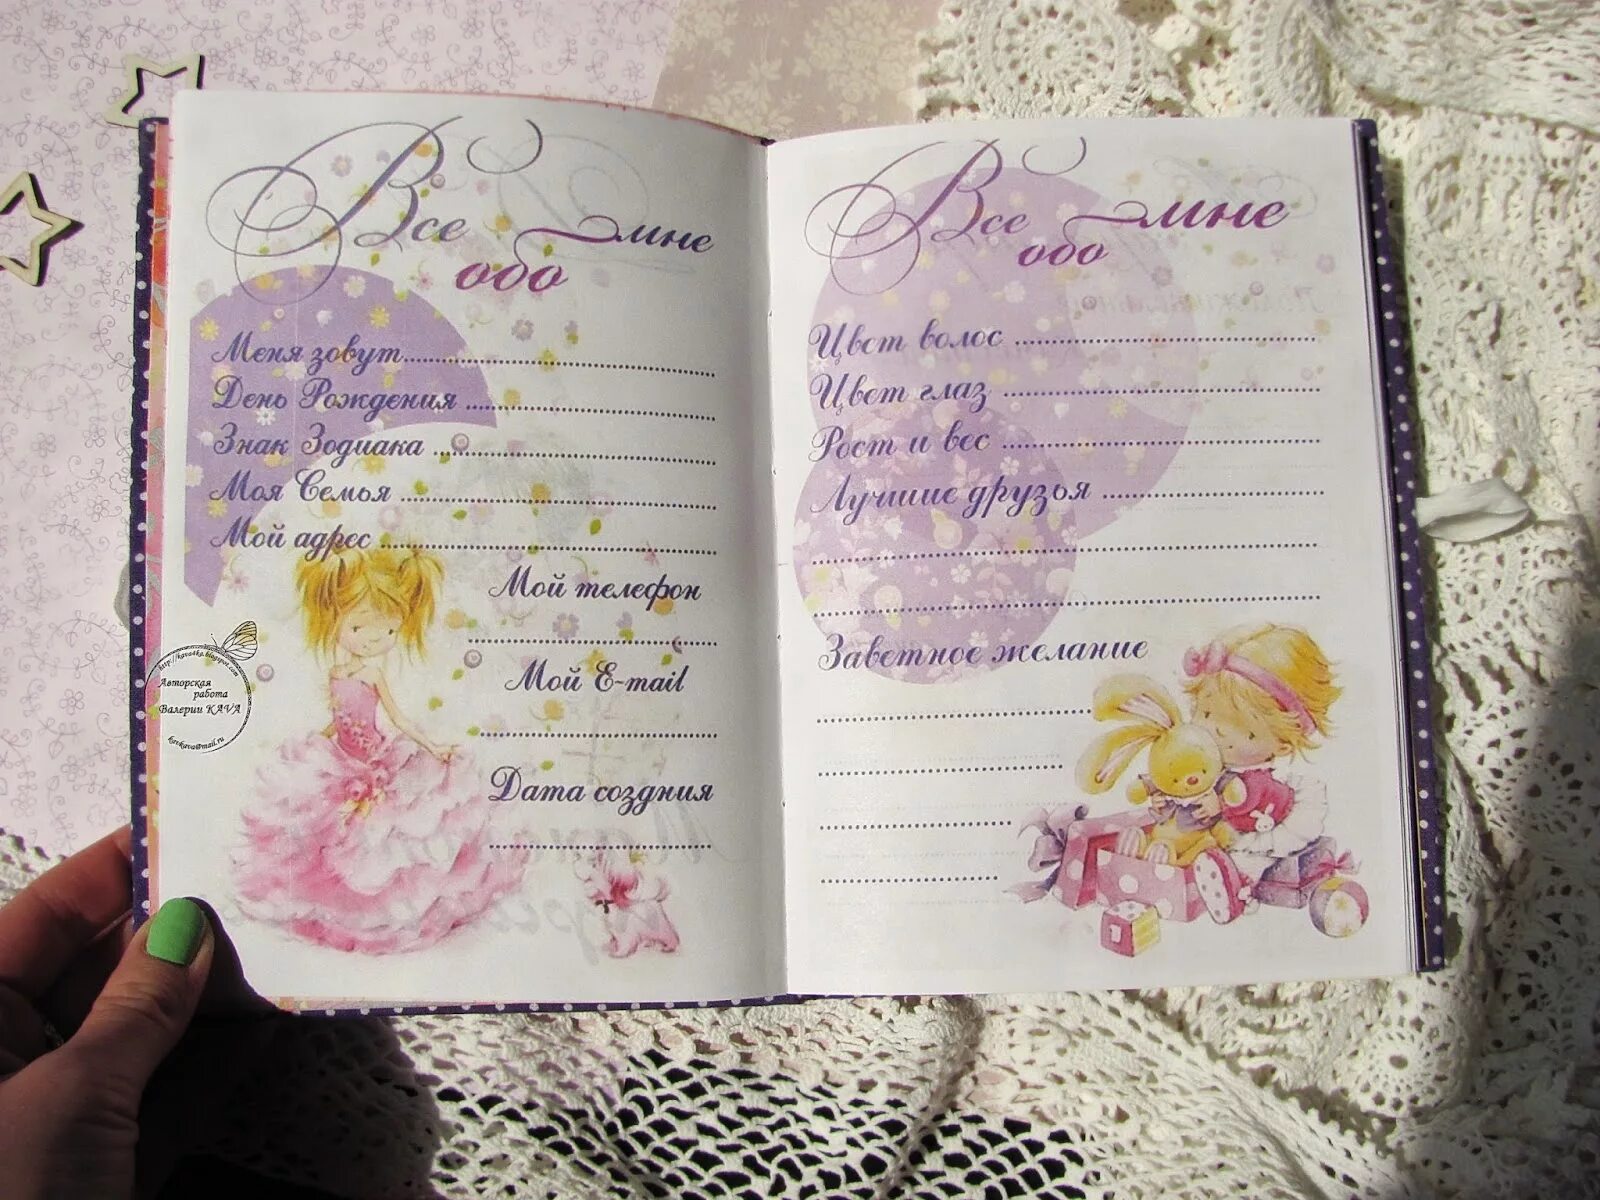 Все обо мне
Меня зовут
День Рождения
Знак Зодиака
Моя Семья
Мой адрес
Мой телефон
Мой E-mail
Дата создния
http://kava4ka.blogspot.com
Авторская
работа
Валерии KAVA
kavkava@mail.ru
Все обо мне
Цвет волос
Цвет глаз
Рост и вес
Лучшие друзья
Заветное желание